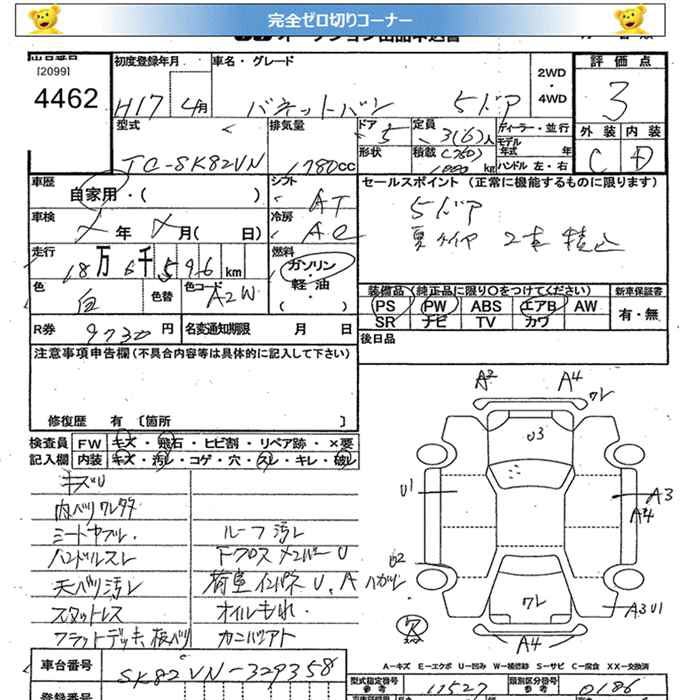 完全ゼロ切りコーナー
[2099]
4462
初度登録年月
H17 4月
車名・グレード
バネットバン 5ドア
2WD
・
4WD
評価点
3
外装 内装
C D
型式
TC-SK82VN
排気量
1780cc
ドア 5
形状
定員 3(6)人
積載
kg
ディーラー・並行
モデル年式 年
ハンドル 左・右
車歴
自家用・( )
シフト AT
セールスポイント (正常に機能するものに限ります)
5ドア
夏タイヤ 2本 積込
車検
年 月( 日)
冷房 AC
走行
18万6千596km
燃料
ガソリン・軽油・( )
色 白
色替
色コード A2W
装備品(純正品に限り〇をつけてください)
PS PW ABS エアB AW
SR ナビ TV カワ
新車保証書
有・無
R券 9730円
名変通知期限 月 日
後日品
注意事項申告欄(不具合内容等は具体的に記入して下さい)
修復歴 有〔箇所 〕
検査員記入欄
FW キズ・飛石・ヒビ割・リペア跡・×要
内装 キズ・汚レ・コゲ・穴・スレ・キレ・破レ
キズU
内ベリワレタタ
シートヤブレ
ハンドルスレ
天ベリ汚レ
スタットレス
フラットデッキ、板ベリ
ルーフ汚レ
下クロスメンバーU
荷室インパネU、A ハガレ
オイルもれ
A2 A4 ワレ
U3
U1
A3
A4
U2
ワレ
A3U1
A4
A-キズ E-エクボ U-凹み W-補修跡 S-サビ C-腐食 XX-交換済
車台番号 SK82VN-329358
型式指定番号 11527
類別区分番号 0186
参考
登録番号